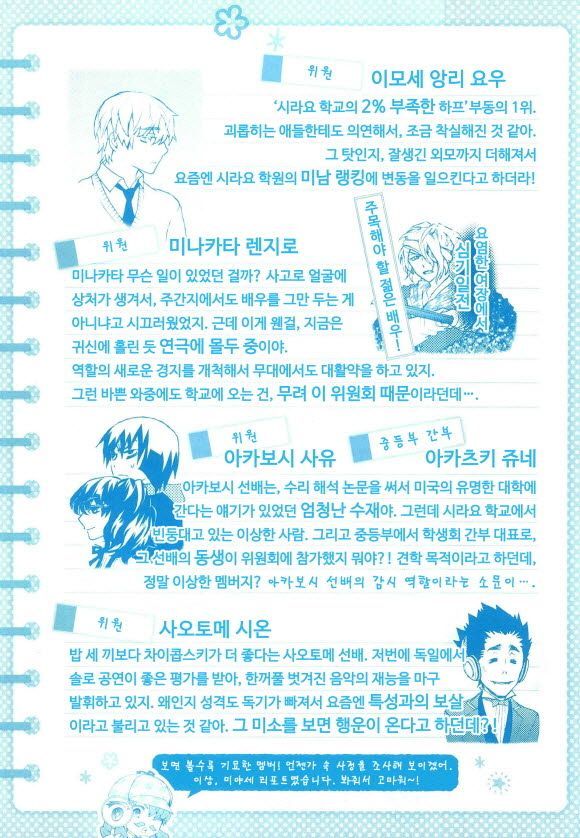 위원
이모세 앙리 요우
'시라요 학교의 2% 부족한 하프'부동의 1위.
괴롭히는 애들한테도 의연해서, 조금 착실해진 것 같아.
그 탓인지, 잘생긴 외모까지 더해져서
요즘엔 시라요 학원의 미남 랭킹에 변동을 일으킨다고 하더라!
위원
미나카타 렌지로
미나카타 무슨 일이 있었던 걸까? 사고로 얼굴에
상처가 생겨서, 주간지에서도 배우를 그만 두는 게
아니냐고 시끄러웠었지. 근데 이게 웬걸, 지금은
귀신에 홀린 듯 연극에 몰두 중이야.
역할의 새로운 경지를 개척해서 무대에서도 대활약을 하고 있지.
그런 바쁜 와중에도 학교에 오는 건, 무려 이 위원회 때문이라던데….
주목해야 할 젊은 배우!
요염한 여장에서
심기일전
위원
아카보시 사유
중등부 간부
아카츠키 쥬네
아카보시 선배는, 수리 해석 논문을 써서 미국의 유명한 대학에
간다는 얘기가 있었던 엄청난 수재야. 그런데 시라요 학교에서
빈둥대고 있는 이상한 사람. 그리고 중등부에서 학생회 간부 대표로,
그 선배의 동생이 위원회에 참가했지 뭐야?! 견학 목적이라고 하던데,
정말 이상한 멤버지? 아카보시 선배의 감시 역할이라는 소문이….
위원
사오토메 시온
밥 세 끼보다 차이콥스키가 더 좋다는 사오토메 선배. 저번에 독일에서
솔로 공연이 좋은 평가를 받아, 한꺼풀 벗겨진 음악의 재능을 마구
발휘하고 있지. 왜인지 성격도 독기가 빠져서 요즘엔 특성과의 보살
이라고 불리고 있는 것 같아. 그 미소를 보면 행운이 온다고 하던데?!
보면 볼수록 기묘한 멤버! 언젠가 속 사정을 조사해 보이겠어.
이상, 미야세 리포트였습니다. 봐줘서 고마워~!